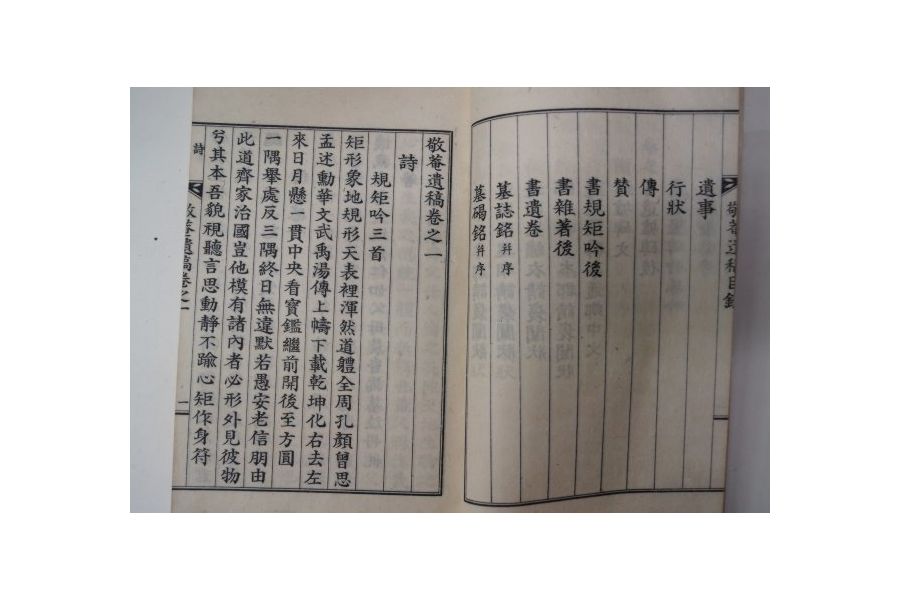 敬菴遺稿目錄
遺事
行狀
傳
贊
書規矩吟後
書雜著後
書遺卷
墓誌銘 并序
墓碣銘 并序
敬菴遺稿卷之一
詩
規矩吟三首
矩形象地規形天表裡渾然道軆全周孔顏曾思
孟述勳華文武禹湯傳上幬下載乾坤化右去左
來日月懸一貫中央看寶鑑繼前開後至方圓
一隅舉處反三隅終日無違默若愚安老信朋由
此道齊家治國豈他模有諸內者必形外見彼物
兮其本吾貌視聽言思動靜不踰心矩作身符
詩
敬菴遺稿卷之一
一